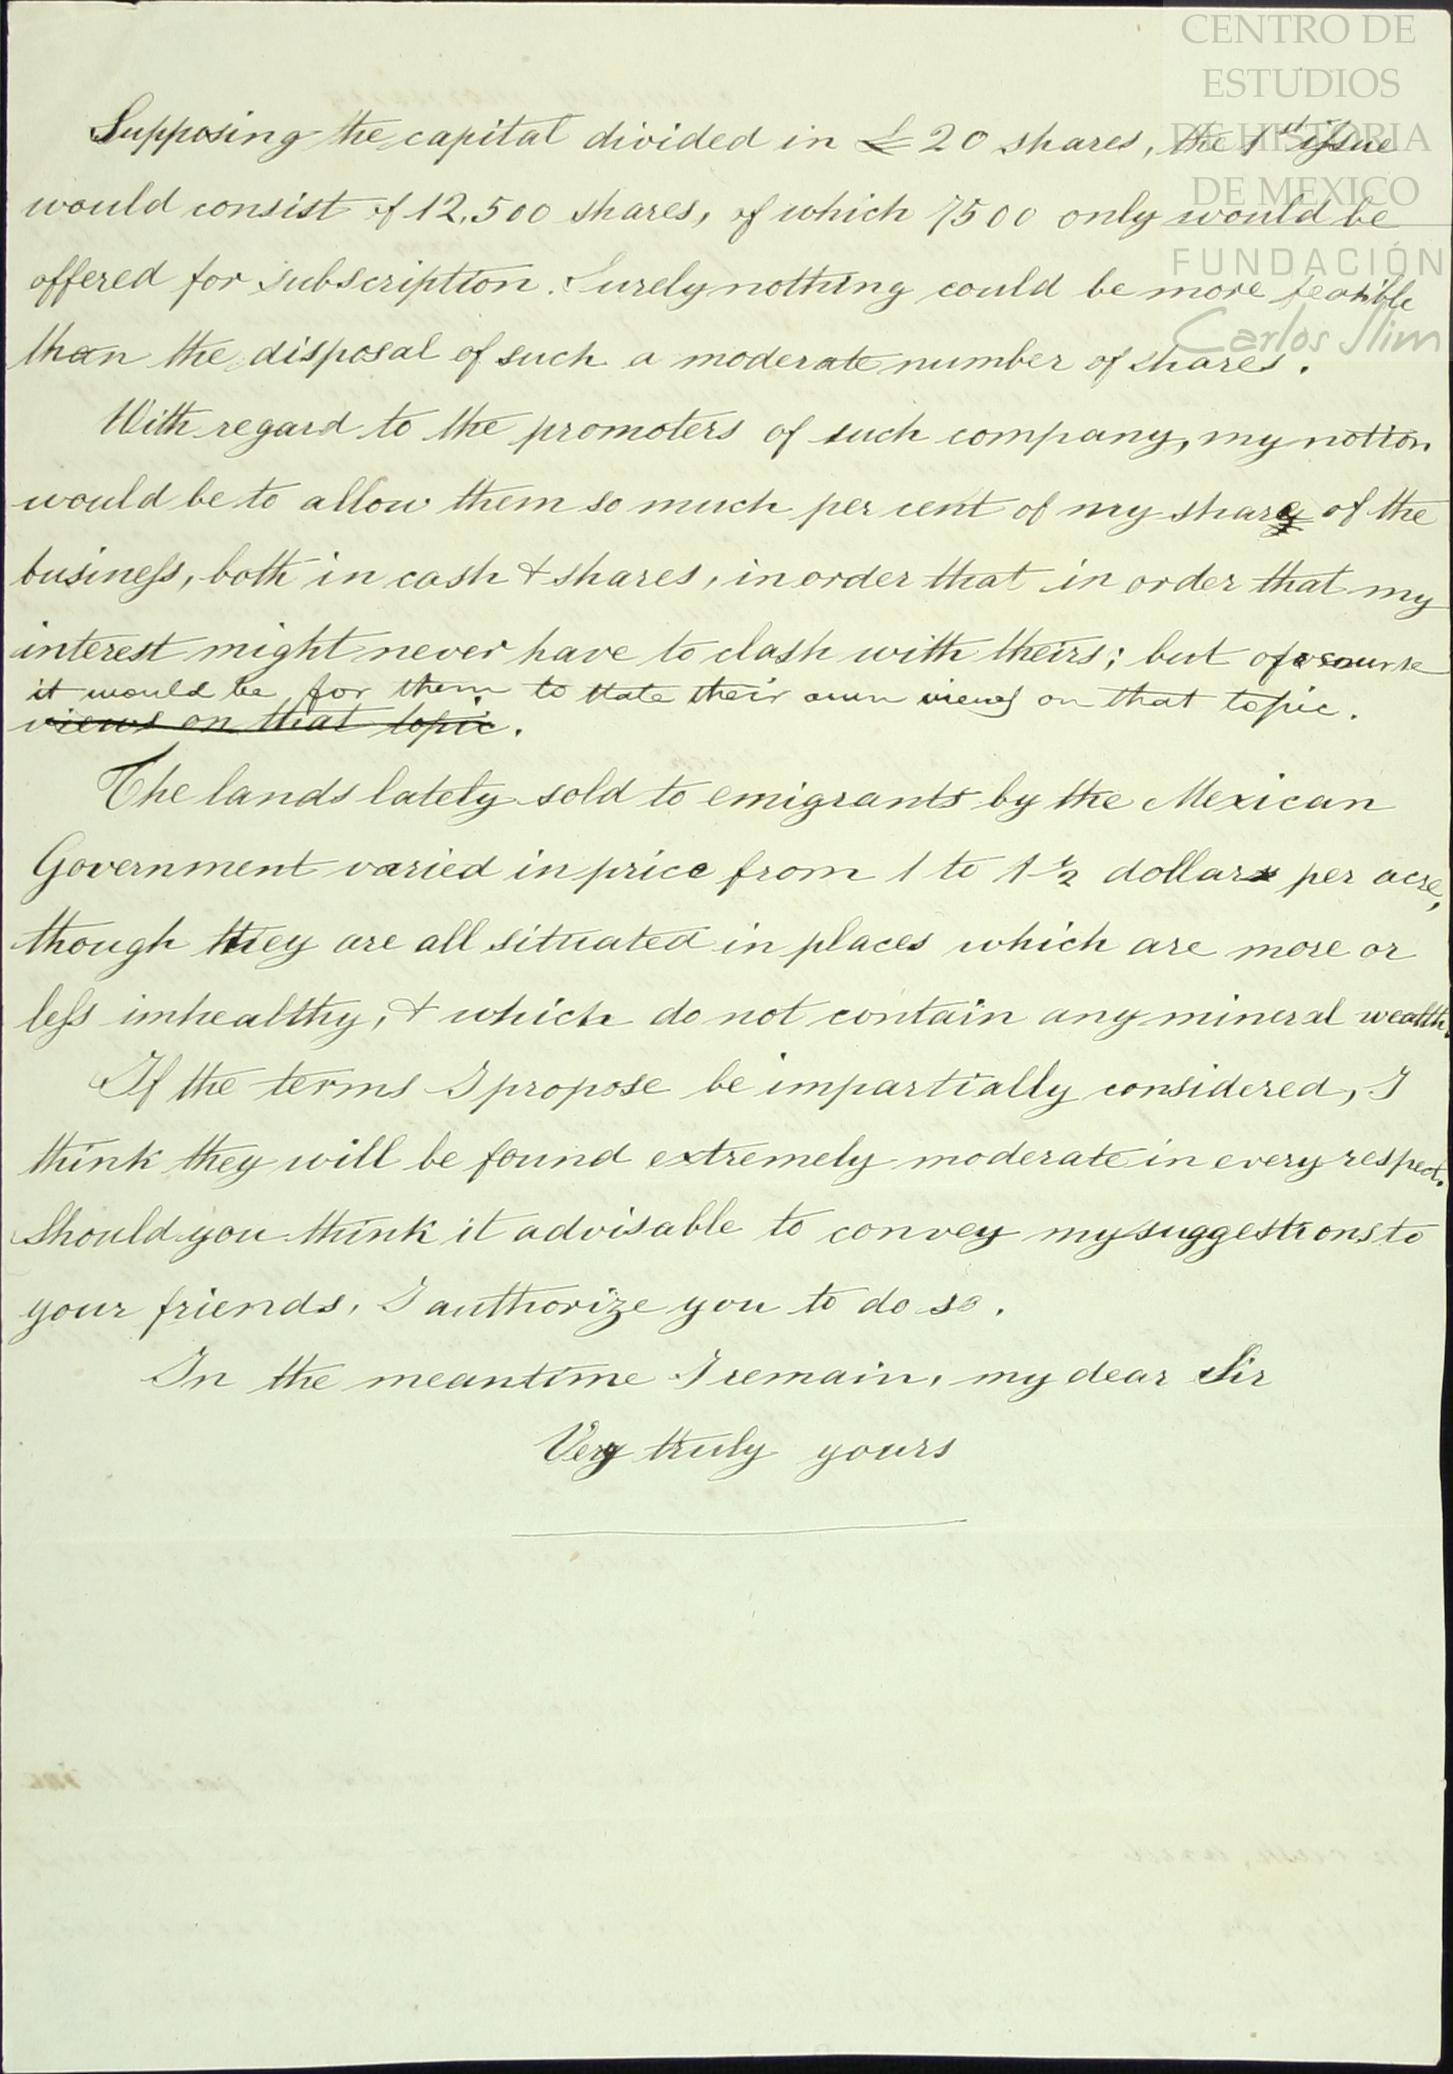 CENTRO DE
ESTUDIOS
DE HISTORIA
DE MEXICO
FUNDACIÓN
Carlos Slim
Supposing the capital divided in £20 shares, the 1st issue
would consist of 12,500 shares, of which 7500 only would be
offered for subscription. Surely nothing could be more feasible
than the disposal of such a moderate number of shares.
With regard to the promoters of such company, my notion
would be to allow them so much per cent of my share of the
business, both in cash & shares, in order that in order that my
interest might never have to clash with theirs; but of course
it would be for them to state their own views on that topic.
views on that topic.
The lands lately sold to emigrants by the Mexican
Government varied in price from 1 to 1 1/2 dollars per acre,
though they are all situated in places which are more or
less imhealthy, & which do not contain any mineral wealth.
If the terms I propose be impartially considered, I
think they will be found extremely moderate in every respect.
Should you think it advisable to convey my suggestions to
your friends, I authorize you to do so.
In the meantime I remain, my dear Sir
Very truly yours